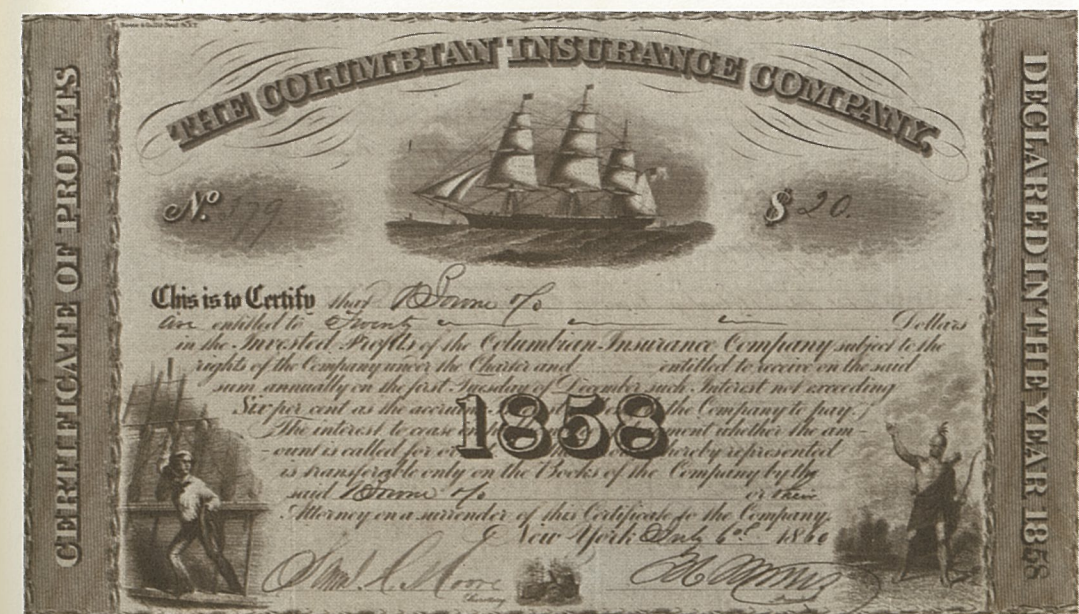 THE COLUMBIAN INSURANCE COMPANY.
CERTIFICATE OF PROFITS
DECLARED IN THE YEAR 1858
No. 379
$ 20.
This is to Certify that
are entitled to Twenty Dollars
in the Invested Profits of the Columbian Insurance Company subject to the
rights of the Company under the Charter and entitled to receive on the said
sum annually on the first Tuesday of December such Interest not exceeding
Six per cent as the the Company to pay.
The interest to cease whether the am-
ount is called for or hereby represented
is transferable only on the Books of the Company by the
said or their
Attorney on a surrender of this Certificate to the Company.
New York July 6th 1860
1858
Saml. Moore
Secretary